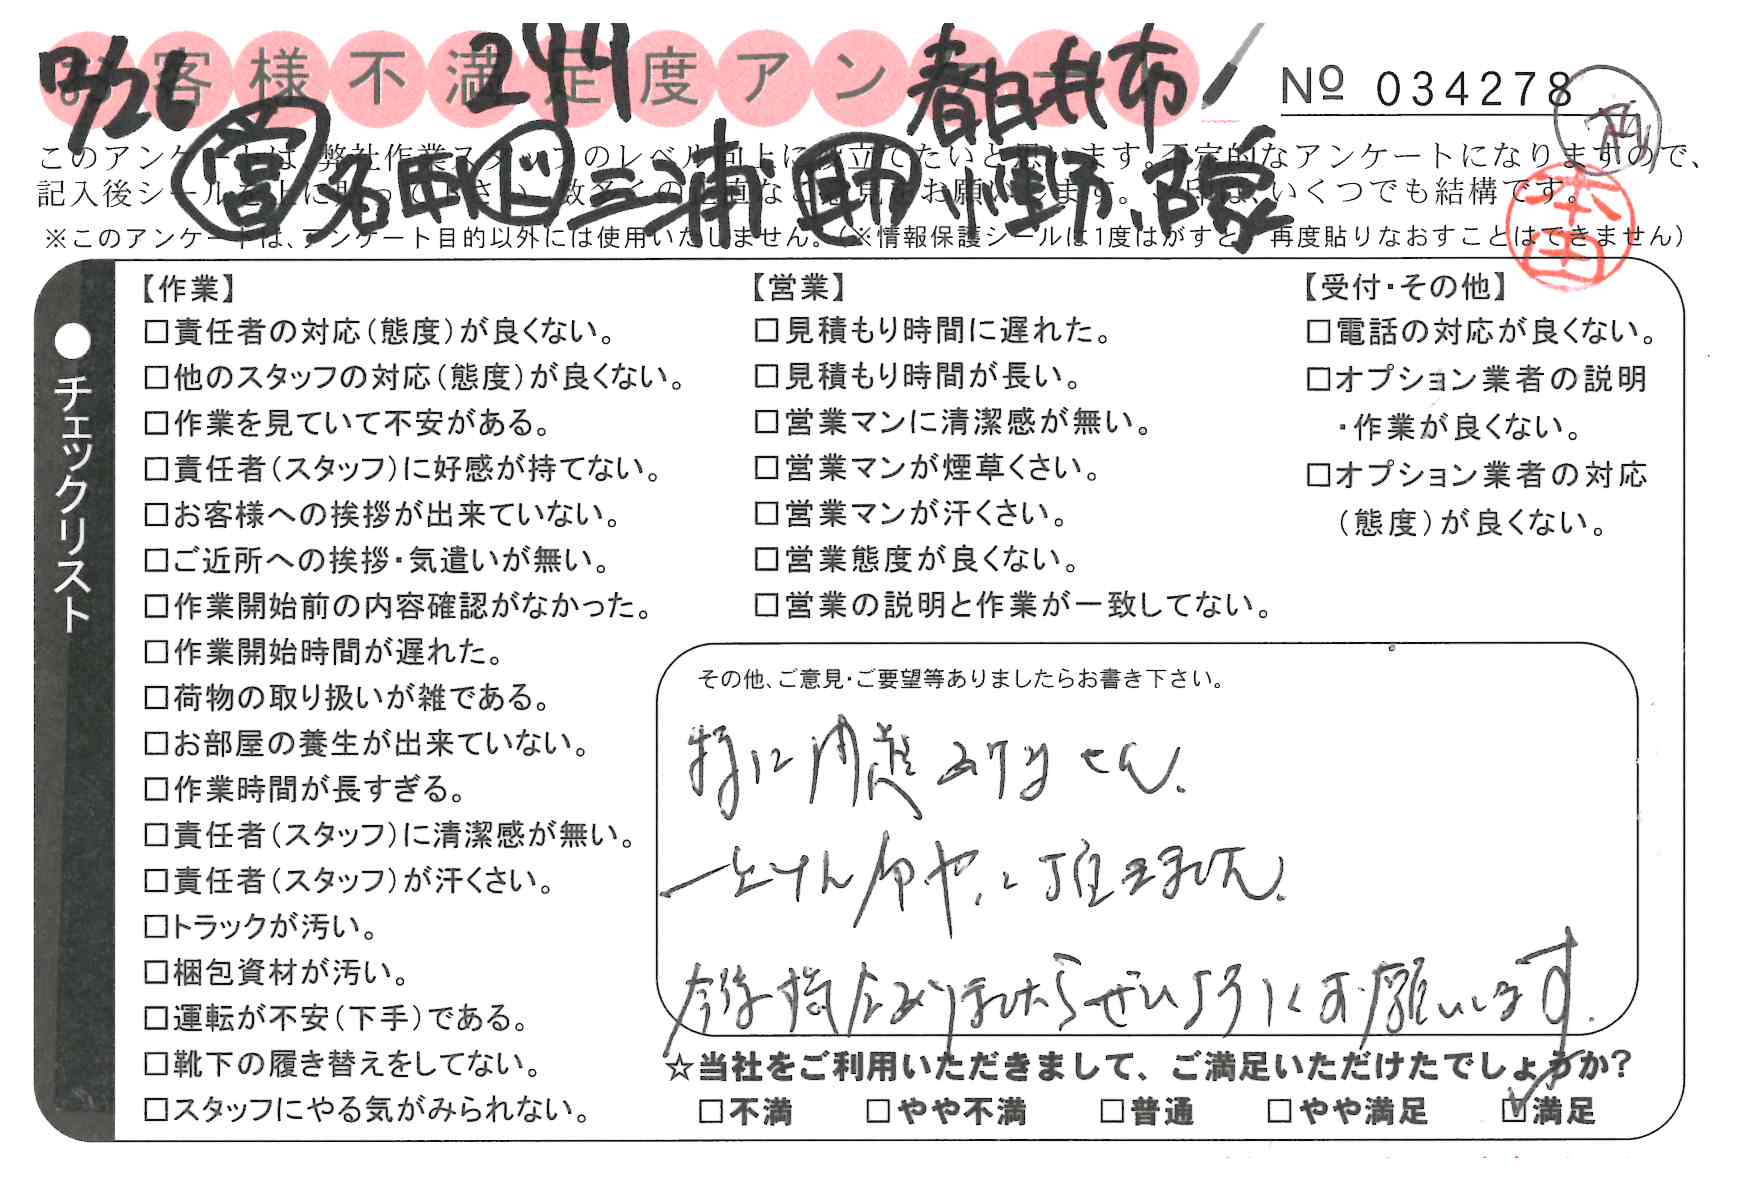 お客様不満足度アンケート
7/26 244 春日井市
№ 034278
営 ド 三浦 助
このアンケートは、弊社作業スタッフのレベル向上に役立てたいと思います。否定的なアンケートになりますので、
記入後シールを上に貼って下さい。数多くの正直なご意見をお願いします。 いくつでも結構です。
※このアンケートは、アンケート目的以外には使用いたしません。(※情報保護シールは1度はがすと、再度貼りなおすことはできません)
本田
●チェックリスト
【作業】
□責任者の対応(態度)が良くない。
□他のスタッフの対応(態度)が良くない。
□作業を見ていて不安がある。
□責任者(スタッフ)に好感が持てない。
□お客様への挨拶が出来ていない。
□ご近所への挨拶・気遣いが無い。
□作業開始前の内容確認がなかった。
□作業開始時間が遅れた。
□荷物の取り扱いが雑である。
□お部屋の養生が出来ていない。
□作業時間が長すぎる。
□責任者(スタッフ)に清潔感が無い。
□責任者(スタッフ)が汗くさい。
□トラックが汚い。
□梱包資材が汚い。
□運転が不安(下手)である。
□靴下の履き替えをしてない。
□スタッフにやる気がみられない。
【営業】
□見積もり時間に遅れた。
□見積もり時間が長い。
□営業マンに清潔感が無い。
□営業マンが煙草くさい。
□営業マンが汗くさい。
□営業態度が良くない。
□営業の説明と作業が一致してない。
【受付・その他】
□電話の対応が良くない。
□オプション業者の説明
・作業が良くない。
□オプション業者の対応
(態度)が良くない。
その他、ご意見・ご要望等ありましたらお書き下さい。
特に問題ありません。
今後機会ありましたらぜひよろしくお願いします。
☆当社をご利用いただきまして、ご満足いただけたでしょうか?
□不満 □やや不満 □普通 □やや満足 ☑満足